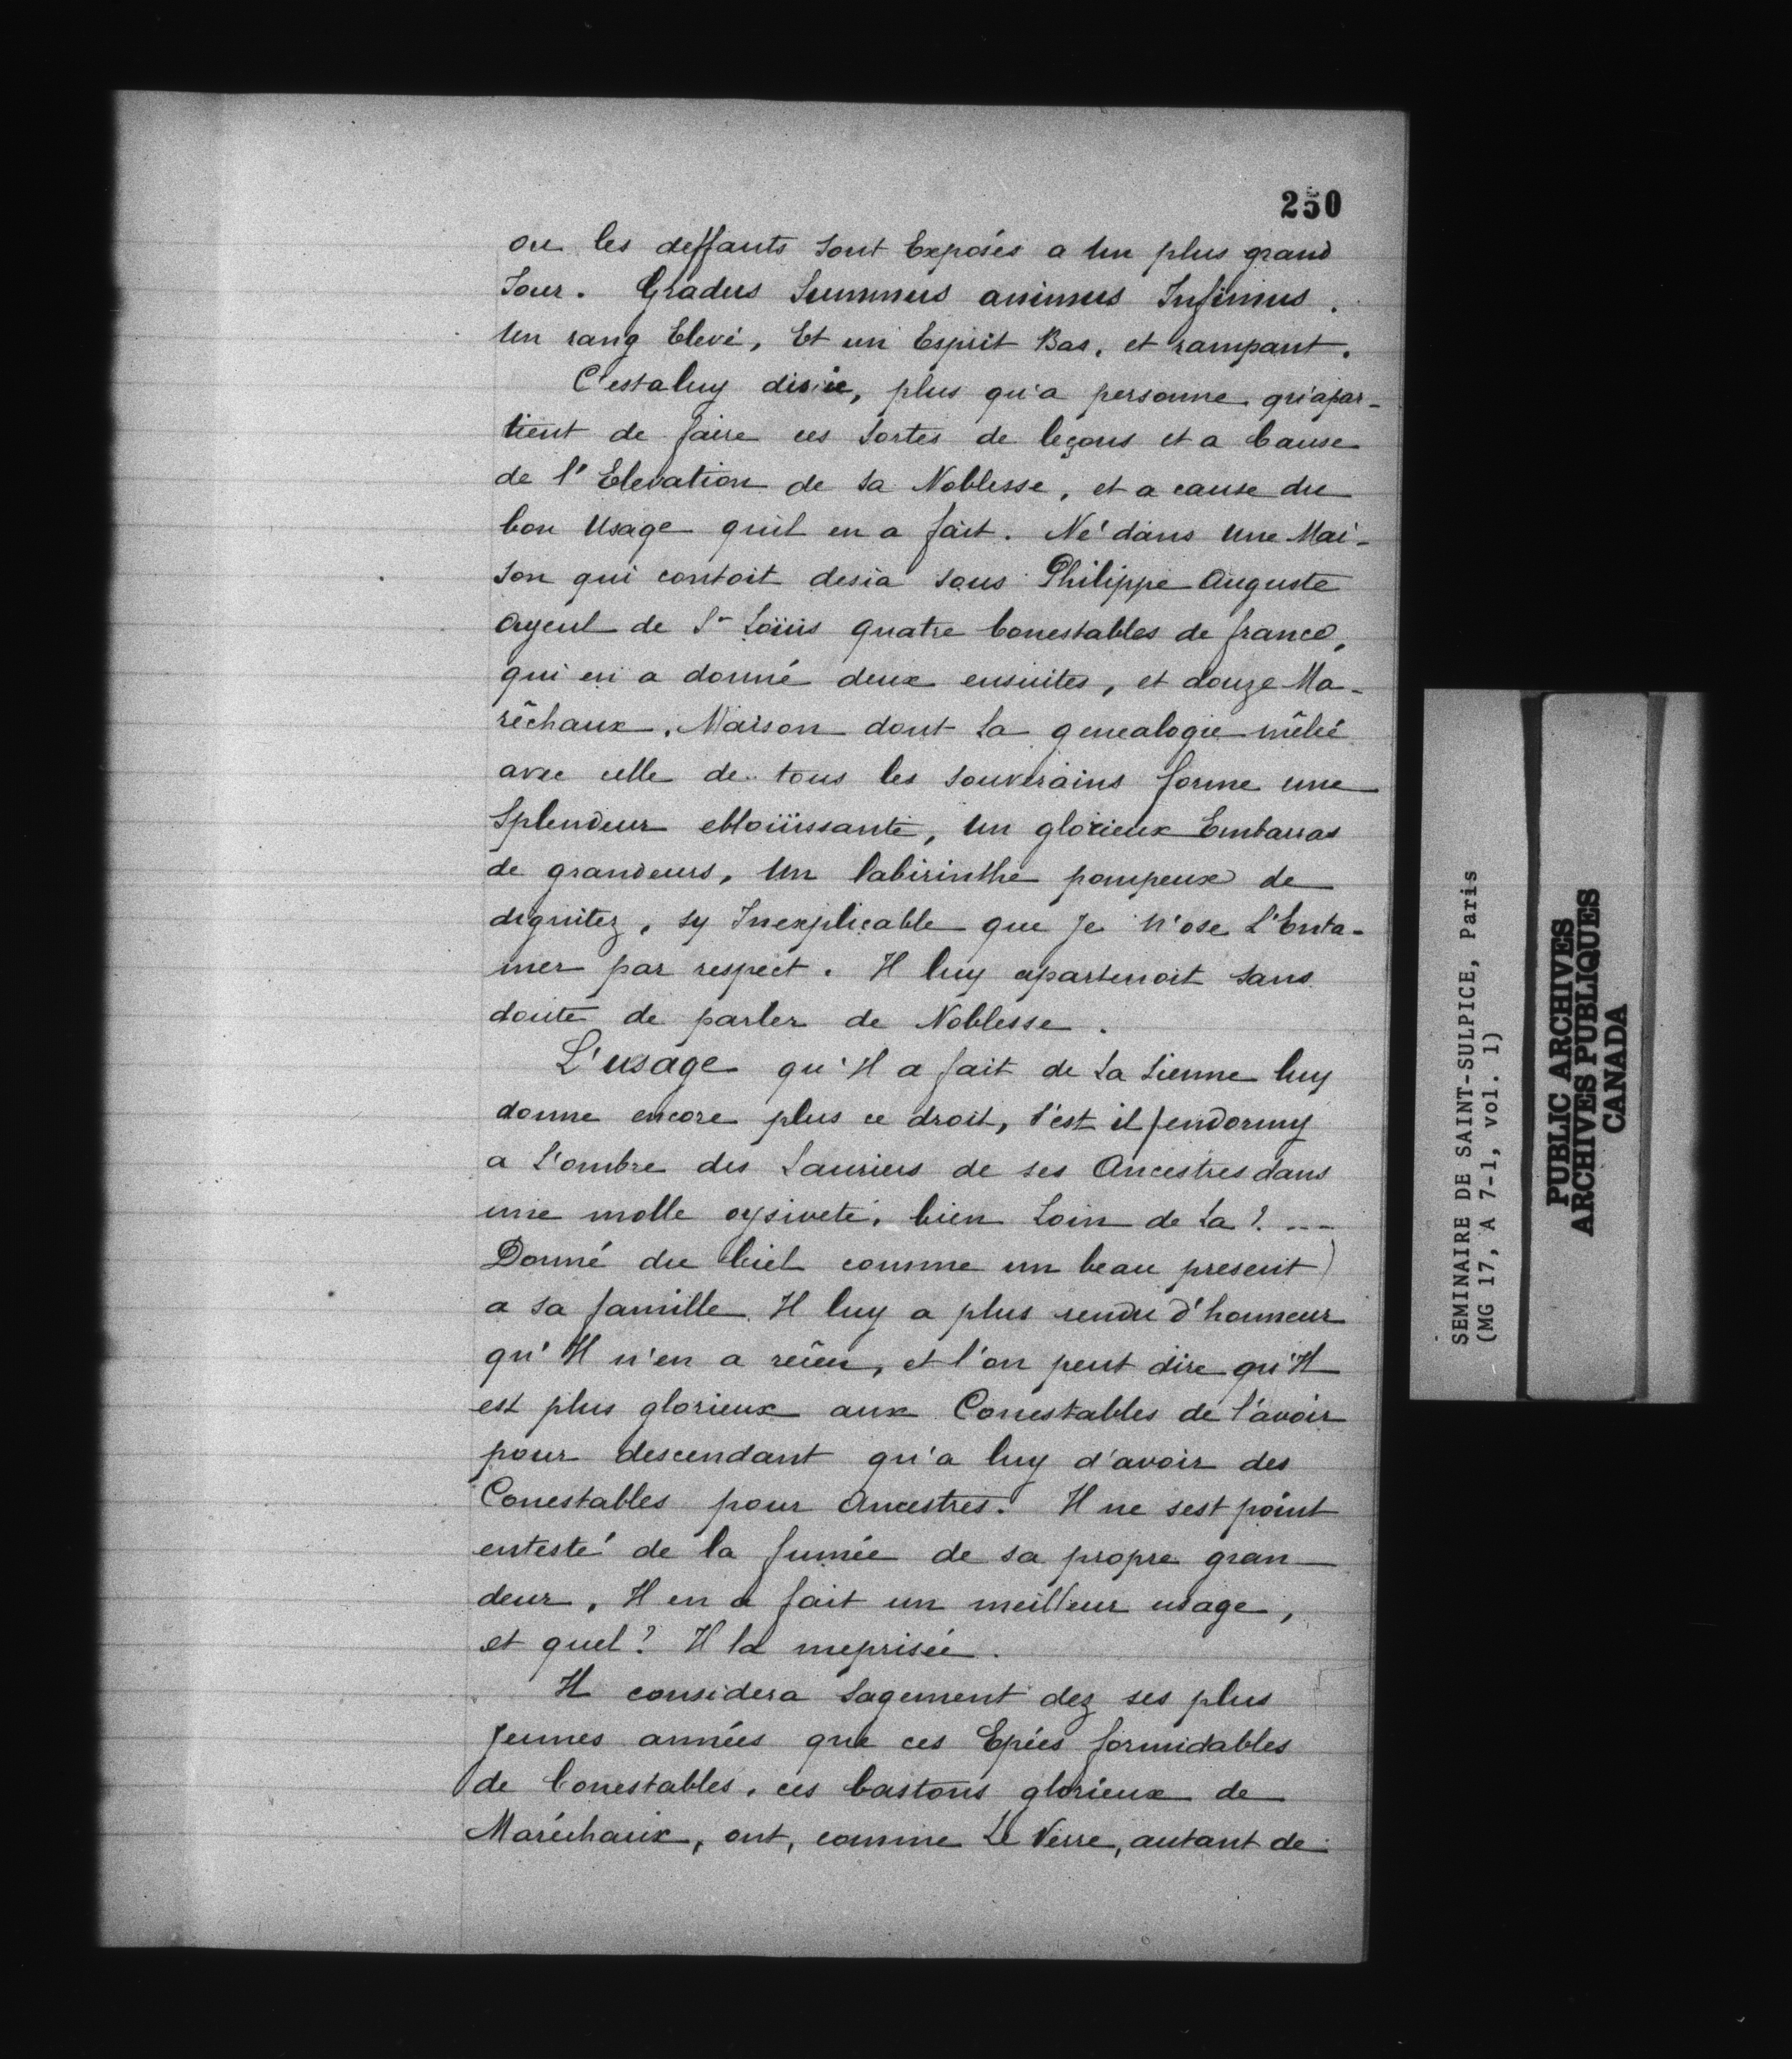 250
ou les deffauts sont Exposés a Un plus grand
Jour. Gradus Summus animus Infimus.
Un rang Elevé, Et un Esprit Bas, et rampant.
C'estaluy dis ie, plus qu'a personne qu'apar-
tient de faire ces sortes de leçons et a Cause
de l'Elevation de sa Noblesse, et a cause du
bon Usage quil en a fait. Né dans Une Mai-
son qui contoit desia sous Philippe Auguste
Ayeul de St Loüis quatre Conestables de france,
qui en a donné deux ensuites, et douze Ma-
rêchaux, Maison dont la genealogie mêlée
avec celle de tous les souverains forme une
Splendeur ebloüissante, Un glorieux Embarras
de grandeurs, Un labirinthe pompeux de
dignitez, sy Inexplicable que Je N'ose L'Enta-
mer par respect. Il luy apartenoit sans
doute de parler de Noblesse.
L'usage qu'Il a fait de la sienne luy
donne encore plus ce droit, s'est il fendormy
a L'ombre des Lauriers de ses Ancestres dans
une molle oysiveté, bien Loin de La! ...
Donné du Ciel comme un beau present)
a sa famille Il luy a plus rendu d'honneur
qu'Il n'en a reüeu, et l'on peut dire qu'Il
est plus glorieux aux Conestables de l'avoir
pour descendant qu'a luy d'avoir des
Conestables pour Ancestres. Il ne sest point
entesté de la fumée de sa propre gran-
deur, Il en a fait un meilleur usage,
et quel? Il la meprisée.
Il considera sagement dez ses plus
Jeunes années que ces Epées formidables
de Conestables, ces bastons glorieux de
Maréchaux, ont, comme Le Verre, autant de
SEMINAIRE DE SAINT-SULPICE, Paris
(MG 17, A 7-1, vol. 1)
PUBLIC ARCHIVES
ARCHIVES PUBLIQUES
CANADA